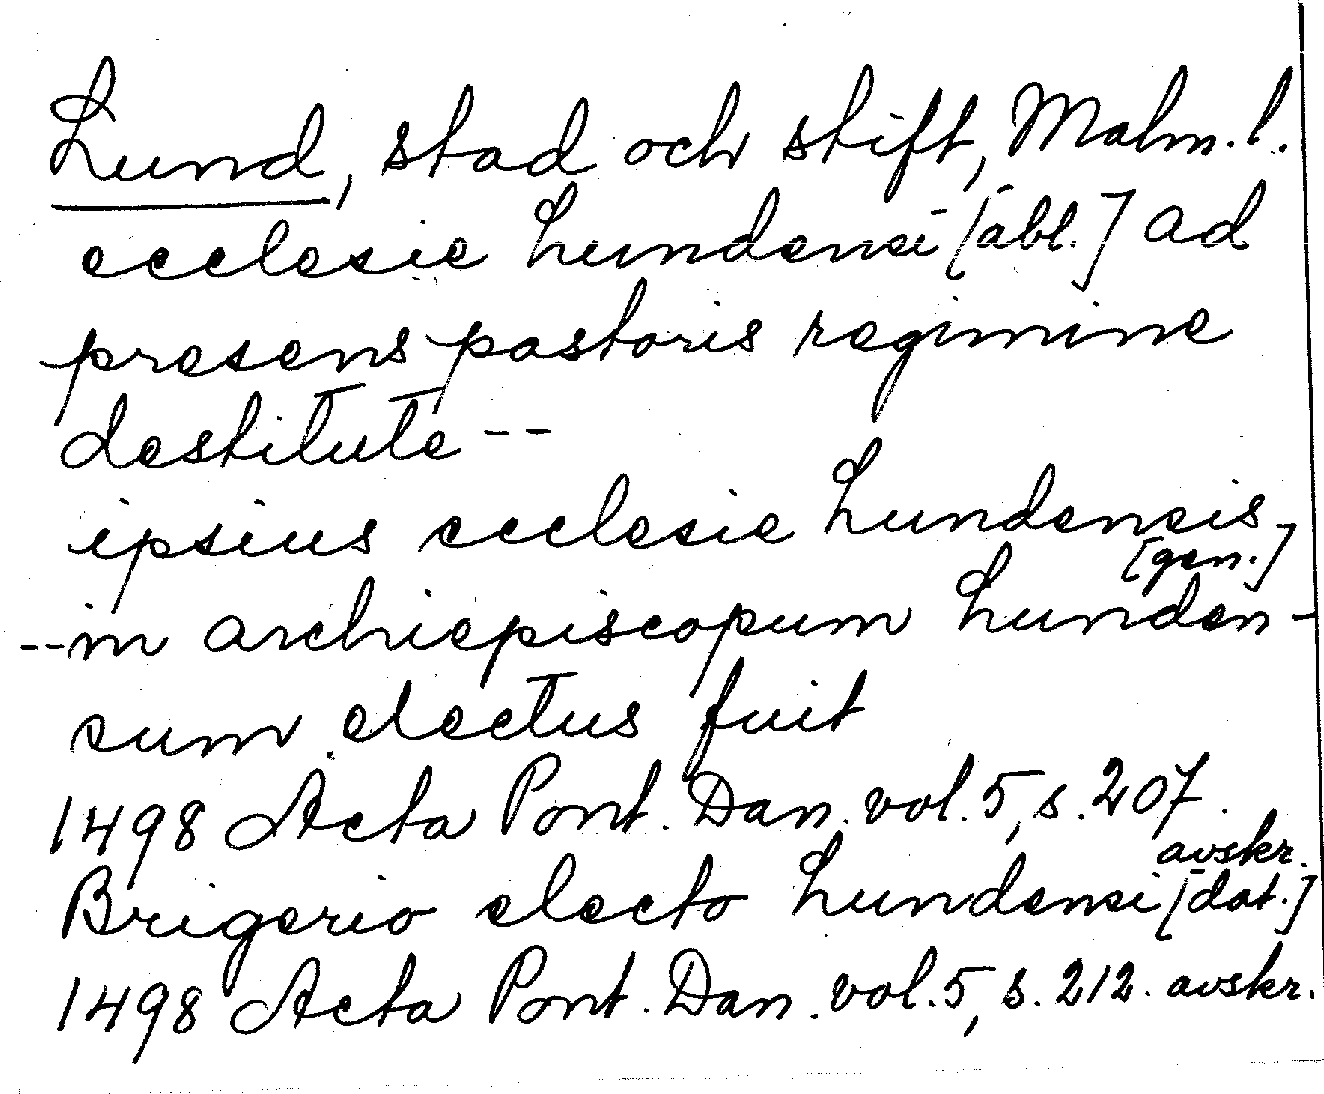 Lund, stad och stift, Malm. l.
ecclesie Lundensi [abl.] ad
presens pastoris regimine
destitute --
ipsius ecclesie Lundensis
[gen.]
-- in archiepiscopum Lunden-
sum electus fuit
1498 Acta Pont. Dan. vol. 5, s. 207.
avskr.
Brigerio electo Lundensi [dat.]
1498 Acta Pont. Dan. vol. 5, s. 212. avskr.